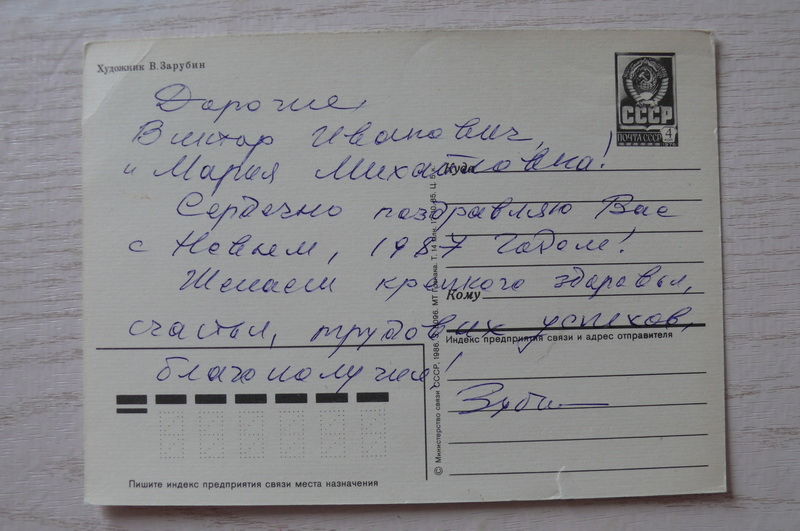 Художник В. Зарубин
СССР
ПОЧТА СССР 4
Дорогие
Виктор Иванович,
и Мария Михайловна!
Сердечно поздравляю Вас
с Новым, 1987 годом!
Желаем крепкого здоровья,
счастья, трудовых успехов,
благополучия!
Куда
Кому
Индекс предприятия связи и адрес отправителя
© Министерство связи СССР, 1986.
Пишите индекс предприятия связи места назначения